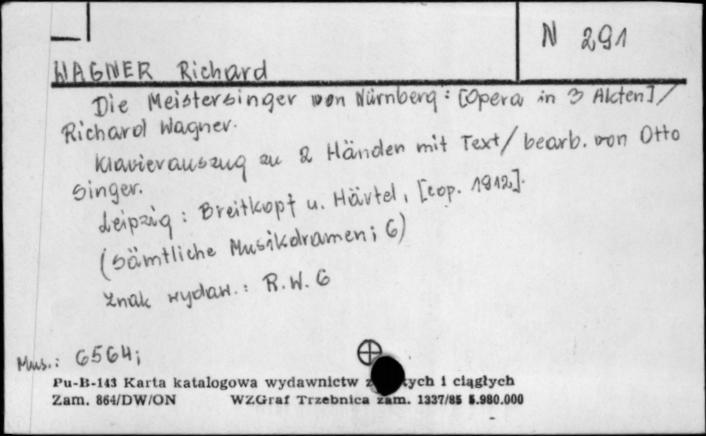 N 291
WAGNER Richard
Die Meistersinger von Nürnberg : [Opera in 3 Akten] /
Richard Wagner.
Klavierauszug zu 2 Händen mit Text / bearb. von Otto
Singer.
Leipzig : Breitkopf u. Härtel, [cop. 1912].
(Sämtliche Musikdramen ; 6)
Znak wydaw. : R.W. 6
Mus.: 6564;
Pu-B-143 Karta katalogowa wydawnictw ych i ciągłych
Zam. 864/DW/ON WZGraf Trzebnica zam. 1337/85 5.980.000